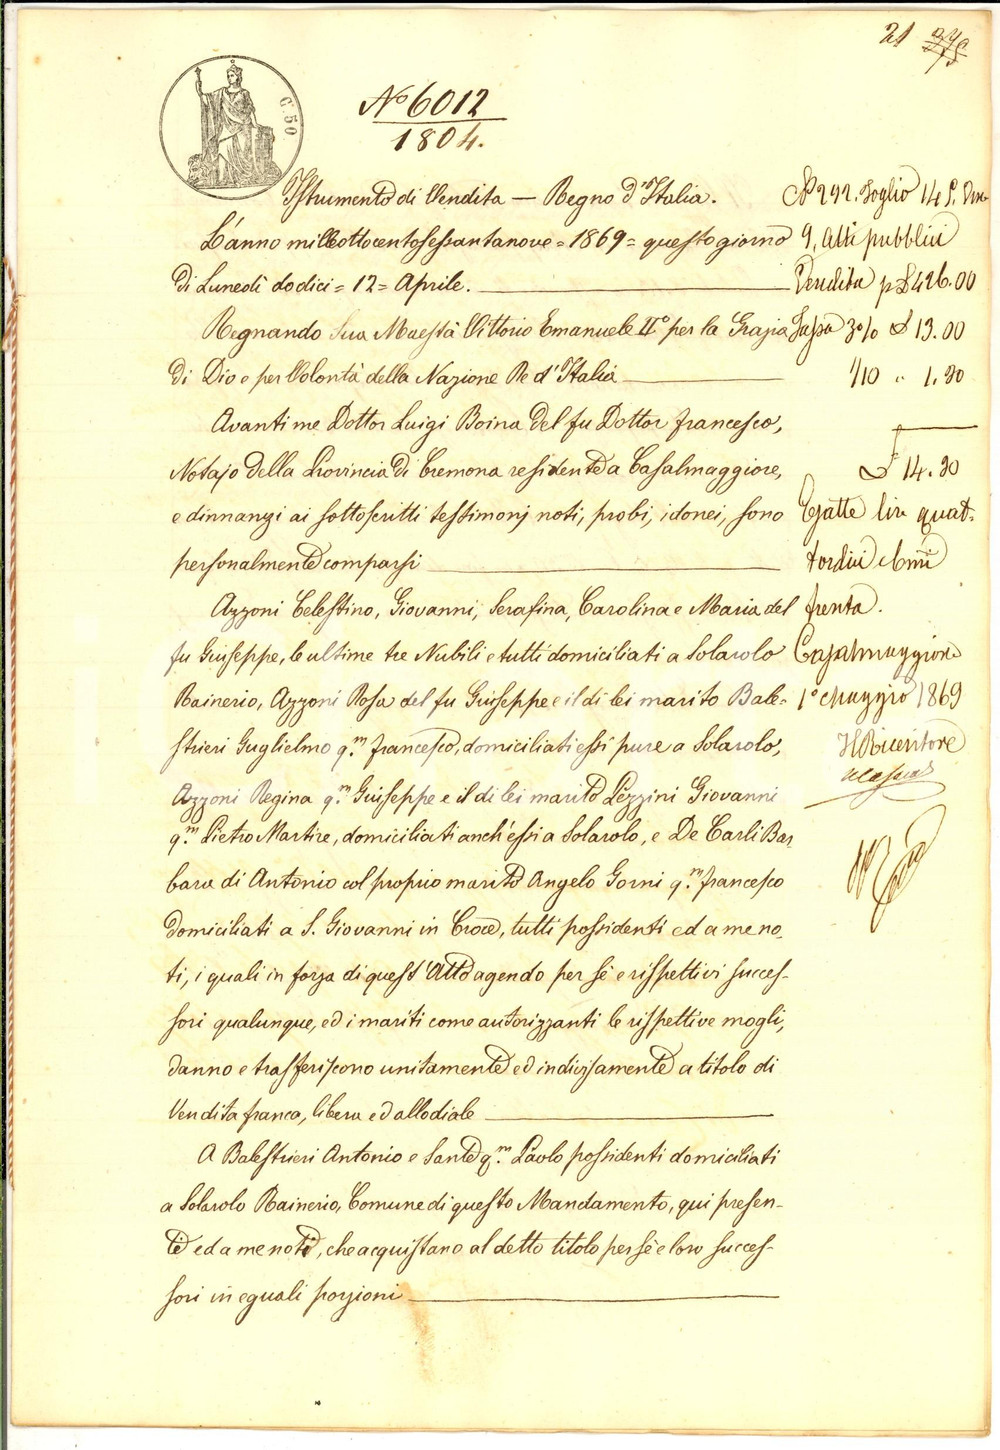 21
C. 50
No 6012
1804.
Istrumento di Vendita — Regno d'Italia.
L'anno milleottocentosessantanove = 1869 = questo giorno
di Lunedì dodici = 12 = Aprile.
Regnando Sua Maestà Vittorio Emanuele II° per la Grazia
di Dio e per Volontà della Nazione Re d'Italia
Avanti me Dottor Luigi Boina del fu Dottor Francesco,
Notajo della Provincia di Cremona residente a Casalmaggiore,
e dinnanzi ai sottoscritti testimonj noti, probi, idonei, sono
personalmente comparsi
Azzoni Celestino, Giovanni, Serafina, Carolina e Maria del
fu Giuseppe, le ultime tre Nubili e tutti domiciliati a Solarolo
Rainerio, Azzoni Rosa del fu Giuseppe e il di lei marito Bale-
strieri Guglielmo q.m Francesco, domiciliati essi pure a Solarolo,
Azzoni Regina q.m Giuseppe e il di lei marito Pezzini Giovanni
q.m Pietro Martire, domiciliati anch'essi a Solarolo, e De Carli Bar-
bara di Antonio col proprio marito Angelo Gorni q.m Francesco
domiciliati a S. Giovanni in Croce, tutti possidenti ed a me no-
ti, i quali in forza di quest'Atto agendo per sé e rispettivi succes-
sori qualunque, ed i mariti come autorizzanti le rispettive mogli,
danno e trasferiscono unitamente ed indivisamente a titolo di
Vendita franca, libera ed allodiale
A Balestrieri Antonio e Sante q.m Paolo possidenti domiciliati
a Solarolo Rainerio, Comune di questo Mandamento, qui presen-
ti ed a me noti, che acquistano al detto titolo per sé e loro succes-
sori in eguali porzioni
No 292. Foglio 14
9. Atti pubblici
Vendita p £ 426.00
Tassa 3% £ 13.00
1/10 " 1.30
£ 14.30
Esatte lire quat-
tordici e Cmi
trenta.
Casalmaggiore
1° Maggio 1869
Il Ricevitore